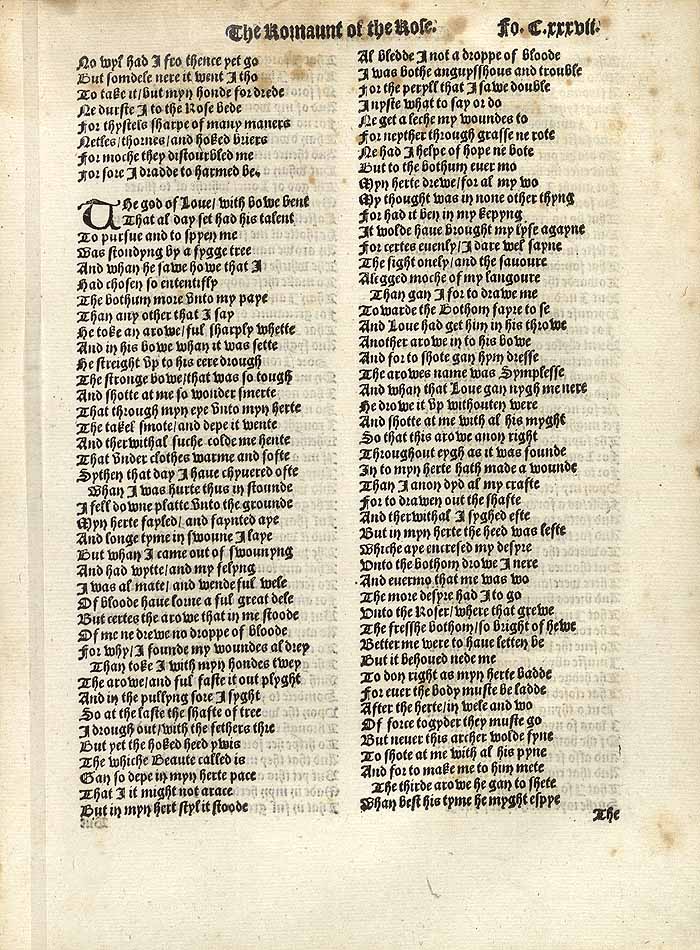 The Romaunt of the Rose. Fo. C.xxxvii.
No wyl had I fro thence yet go
But somdele nere it went I tho
To take it/but myn honde for drede
Ne durste I to the Rose bede
For thystels sharpe of many maners
Netles/thornes/and hoked briers
For moche they distourbled me
For sore I dradde to harmed be.
THe god of Loue/with bowe bent
That al day set had his talent
To pursue and to spyen me
Was stondyng by a fygge tree
And whan he sawe howe that I
Had chosen so ententifly
The bothum more vnto my paye
Than any other that I say
He toke an arowe/ful sharply whette
And in his bowe whan it was sette
He streight vp to his eere drough
The stronge bowe/that was so tough
And shotte at me so wonder smerte
That through myn eye vnto myn herte
The takel smote/and depe it wente
And therwithal suche colde me hente
That vnder clothes warme and softe
Sythen that day I haue chyuered ofte
Whan I was hurte thus in stounde
I fell downe platte vnto the grounde
Myn herte fayled/and faynted aye
And longe tyme in swoune I laye
But whan I came out of swounyng
And had wytte/and my felyng
I was al mate/and wende ful wele
Of bloode haue lorne a ful great dele
But certes the arowe that in me stoode
Of me ne drewe no droppe of bloode
For why/I founde my woundes al drey
Than toke I with myn hondes twey
The arowe/and ful faste it out plyght
And in the pullyng sore I syght
So at the laste the shafte of tree
I drough out/with the fethers thre
But yet the hoked heed ywis
The whiche Beaute called is
Gan so depe in myn herte pace
That I it might not arace
But in myn hert styl it stoode
Al bledde I not a droppe of bloode
I was bothe anguysshous and trouble
For the peryll that I sawe double
I nyste what to say or do
Ne get a leche my woundes to
For neyther through grasse ne rote
Ne had I helpe of hope ne bote
But to the bothum euer mo
Myn herte drewe/for al my wo
My thought was in none other thyng
For had it ben in my kepyng
It wolde haue brought my lyfe agayne
For certes euenly/I dare wel sayne
The sight onely/and the sauoure
Alegged moche of my langoure
Than gan I for to drawe me
Towarde the Bothom fayre to se
And Loue had get him in his throwe
Another arowe in to his bowe
And for to shote gan hym dresse
The arowes name was Symplesse
And whan that Loue gan nygh me nere
He drowe it vp withouten were
And shotte at me with al his myght
So that this arowe anon right
Throughout eygh as it was founde
In to myn herte hath made a wounde
Than I anon dyd al my crafte
For to drawen out the shafte
And therwithal I syghed efte
But in myn herte the heed was lefte
Whiche aye encresed my desyre
Vnto the bothom drowe I nere
And euermo that me was wo
The more desyre had I to go
Vnto the Roser/where that grewe
The fresshe bothom/so bright of hewe
Better me were to haue letten be
But it behoued nede me
To don right as myn herte badde
For euer the body muste be ladde
After the herte/in wele and wo
Of force togyder they muste go
But neuer this archer wolde fyne
To shote at me with al his pyne
And for to make me to him mete
The thirde arowe he gan to shete
Whan best his tyme he myght espye
The